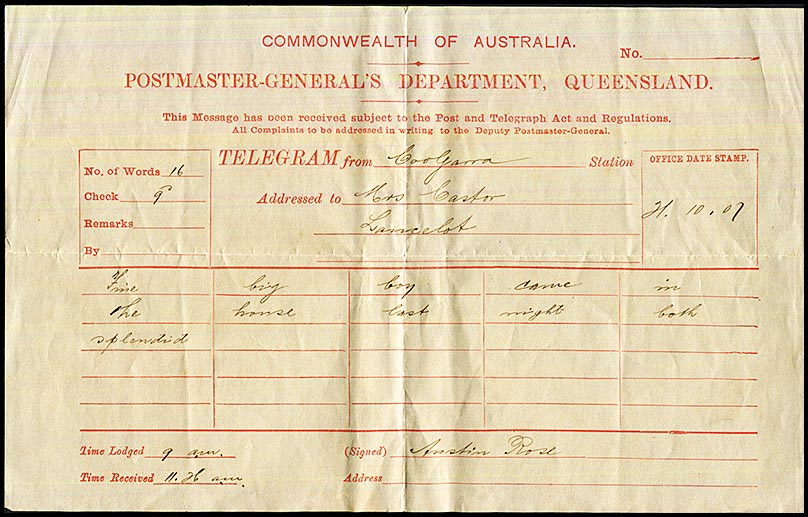 COMMONWEALTH OF AUSTRALIA.
No.
POSTMASTER-GENERAL'S DEPARTMENT, QUEENSLAND.
This Message has been received subject to the Post and Telegraph Act and Regulations.
All Complaints to be addressed in writing to the Deputy Postmaster-General.
No. of Words 16
Check 9
Remarks
By
TELEGRAM from Coolgarra Station
Addressed to Mrs Castor
Lancelot
OFFICE DATE STAMP.
21. 10. 07
Fine big boy came in
the house last night both
splendid
Time Lodged 9 am. (Signed) Austin Rose
Time Received 11.26 am. Address